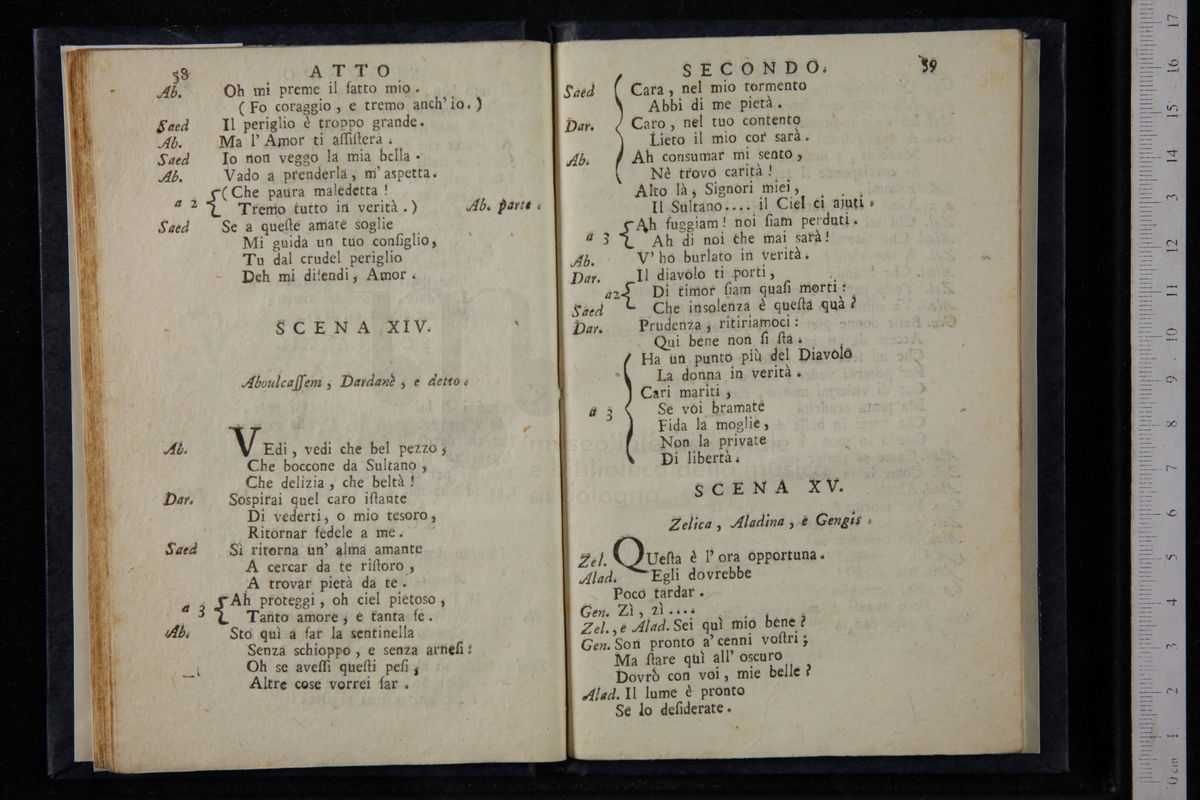 58 ATTO
Ab. Oh mi preme il fatto mio.
(Fo coraggio, e tremo anch' io.)
Saed Il periglio è troppo grande.
Ab. Ma l' Amor ti aſſiſterà.
Saed Io non veggo la mia bella.
Ab. Vado a prenderla, m' aspetta.
a 2 { (Che paura maledetta!
Tremo tutto in verità.) Ab. parte.
Saed Se a queſte amate soglie
Mi guida un tuo conſiglio,
Tu dal crudel periglio
Deh mi difendi, Amor.
SCENA XIV.
Aboulcaſſem, Dardanè, e detto.
Ab. VEdi, vedi che bel pezzo,
Che boccone da Sultano,
Che delizia, che beltà!
Dar. Sospirai quel caro iſtante
Di vederti, o mio tesoro,
Ritornar fedele a me.
Saed Sì ritorna un' alma amante
A cercar da te riſtoro,
A trovar pietà da te.
a 3 { Ah proteggi, oh ciel pietoso,
Tanto amore, e tanta fe.
Ab. Sto quì a far la sentinella
Senza schioppo, e senza arneſi:
Oh se aveſſi queſti peſi,
Altre cose vorrei far.
SECONDO. 59
Saed Cara, nel mio tormento
Abbi di me pietà.
Dar. Caro, nel tuo contento
Lieto il mio cor sarà.
Ab. Ah consumar mi sento,
Nè trovo carità!
Alto là, Signori miei,
Il Sultano.... il Ciel ci ajuti.
a 3 { Ah fuggiam! noi ſiam perduti.
Ah di noi che mai sarà!
Ab. V' ho burlato in verità.
Dar. Il diavolo ti porti,
a 2 { Di timor ſiam quaſi morti:
Saed Che insolenza è queſta quà?
Dar. Prudenza, ritiriamoci:
Qui bene non ſi ſta.
Ha un punto più del Diavolo
La donna in verità.
Cari mariti,
a 3 { Se voi bramate
Fida la moglie,
Non la private
Di libertà.
SCENA XV.
Zelica, Aladina, e Gengis.
Zel. QUeſta è l' ora opportuna.
Alad. Egli dovrebbe
Poco tardar.
Gen. Zì, zì....
Zel., e Alad. Sei quì mio bene?
Gen. Son pronto a' cenni voſtri;
Ma ſtare quì all' oscuro
Dovrò con voi, mie belle?
Alad. Il lume è pronto
Se lo deſiderate.